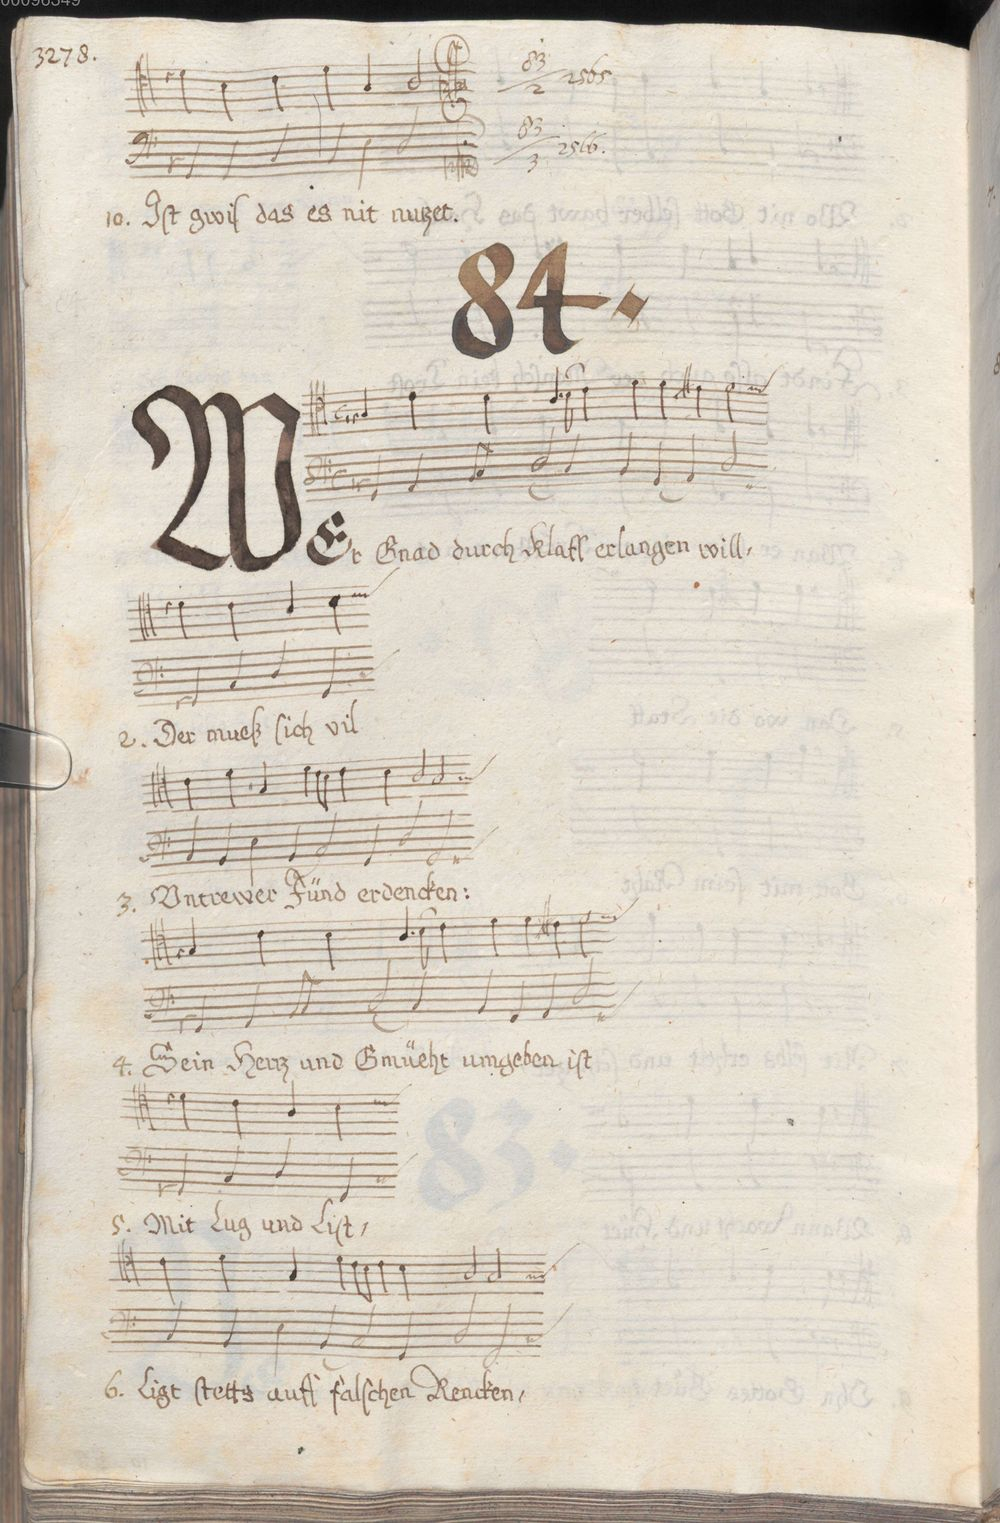 00098549
3278.
83/2 2565
83/3 2566.
10. Ist gwiß das es nit nuzet.
84.
WEr Gnad durch Klaff erlangen will,
2. Der mueß sich vil
3. Vntrewer Fünd erdencken:
4. Sein Herz und Gmüeht umgeben ist
5. Mit Lug und List,
6. Ligt stetts auff falschen Rencken,